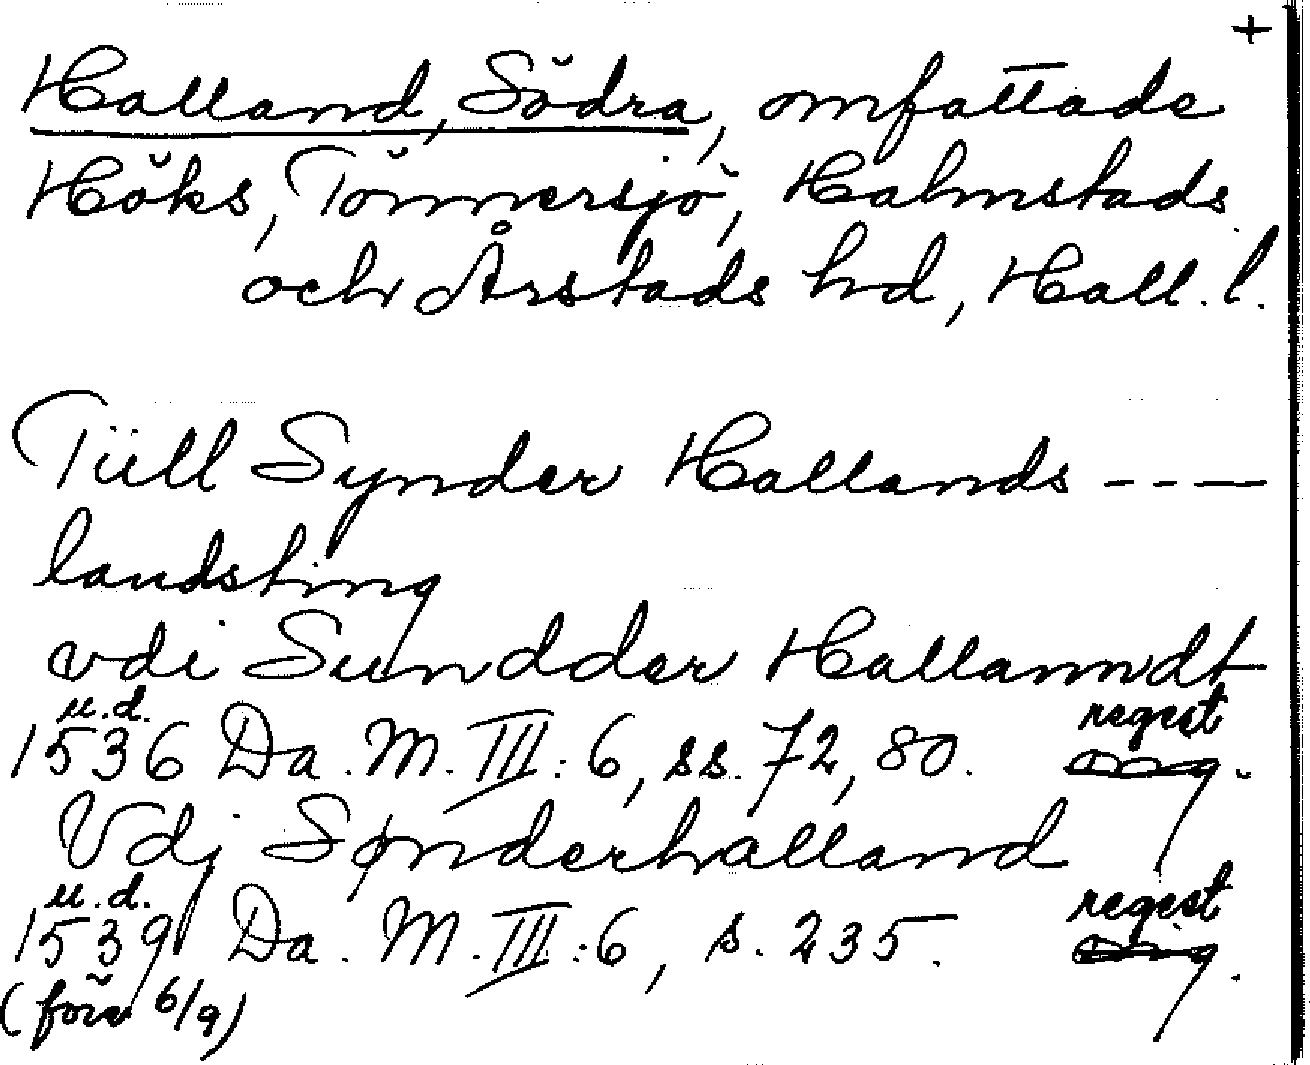 +
Halland, Södra, omfattade
Höks, Tönnersjö, Halmstads
och Årstads hd, Hall. l.
Tiill Synder Hallands - - -
landsting
vdi Sundder Hallanndt
u.d.
1536 Da. M. III: 6, ss. 72, 80. regest
Vdj Sønderhalland
u.d.
1539 Da. M. III: 6, s. 235. regest
(före 6/9)